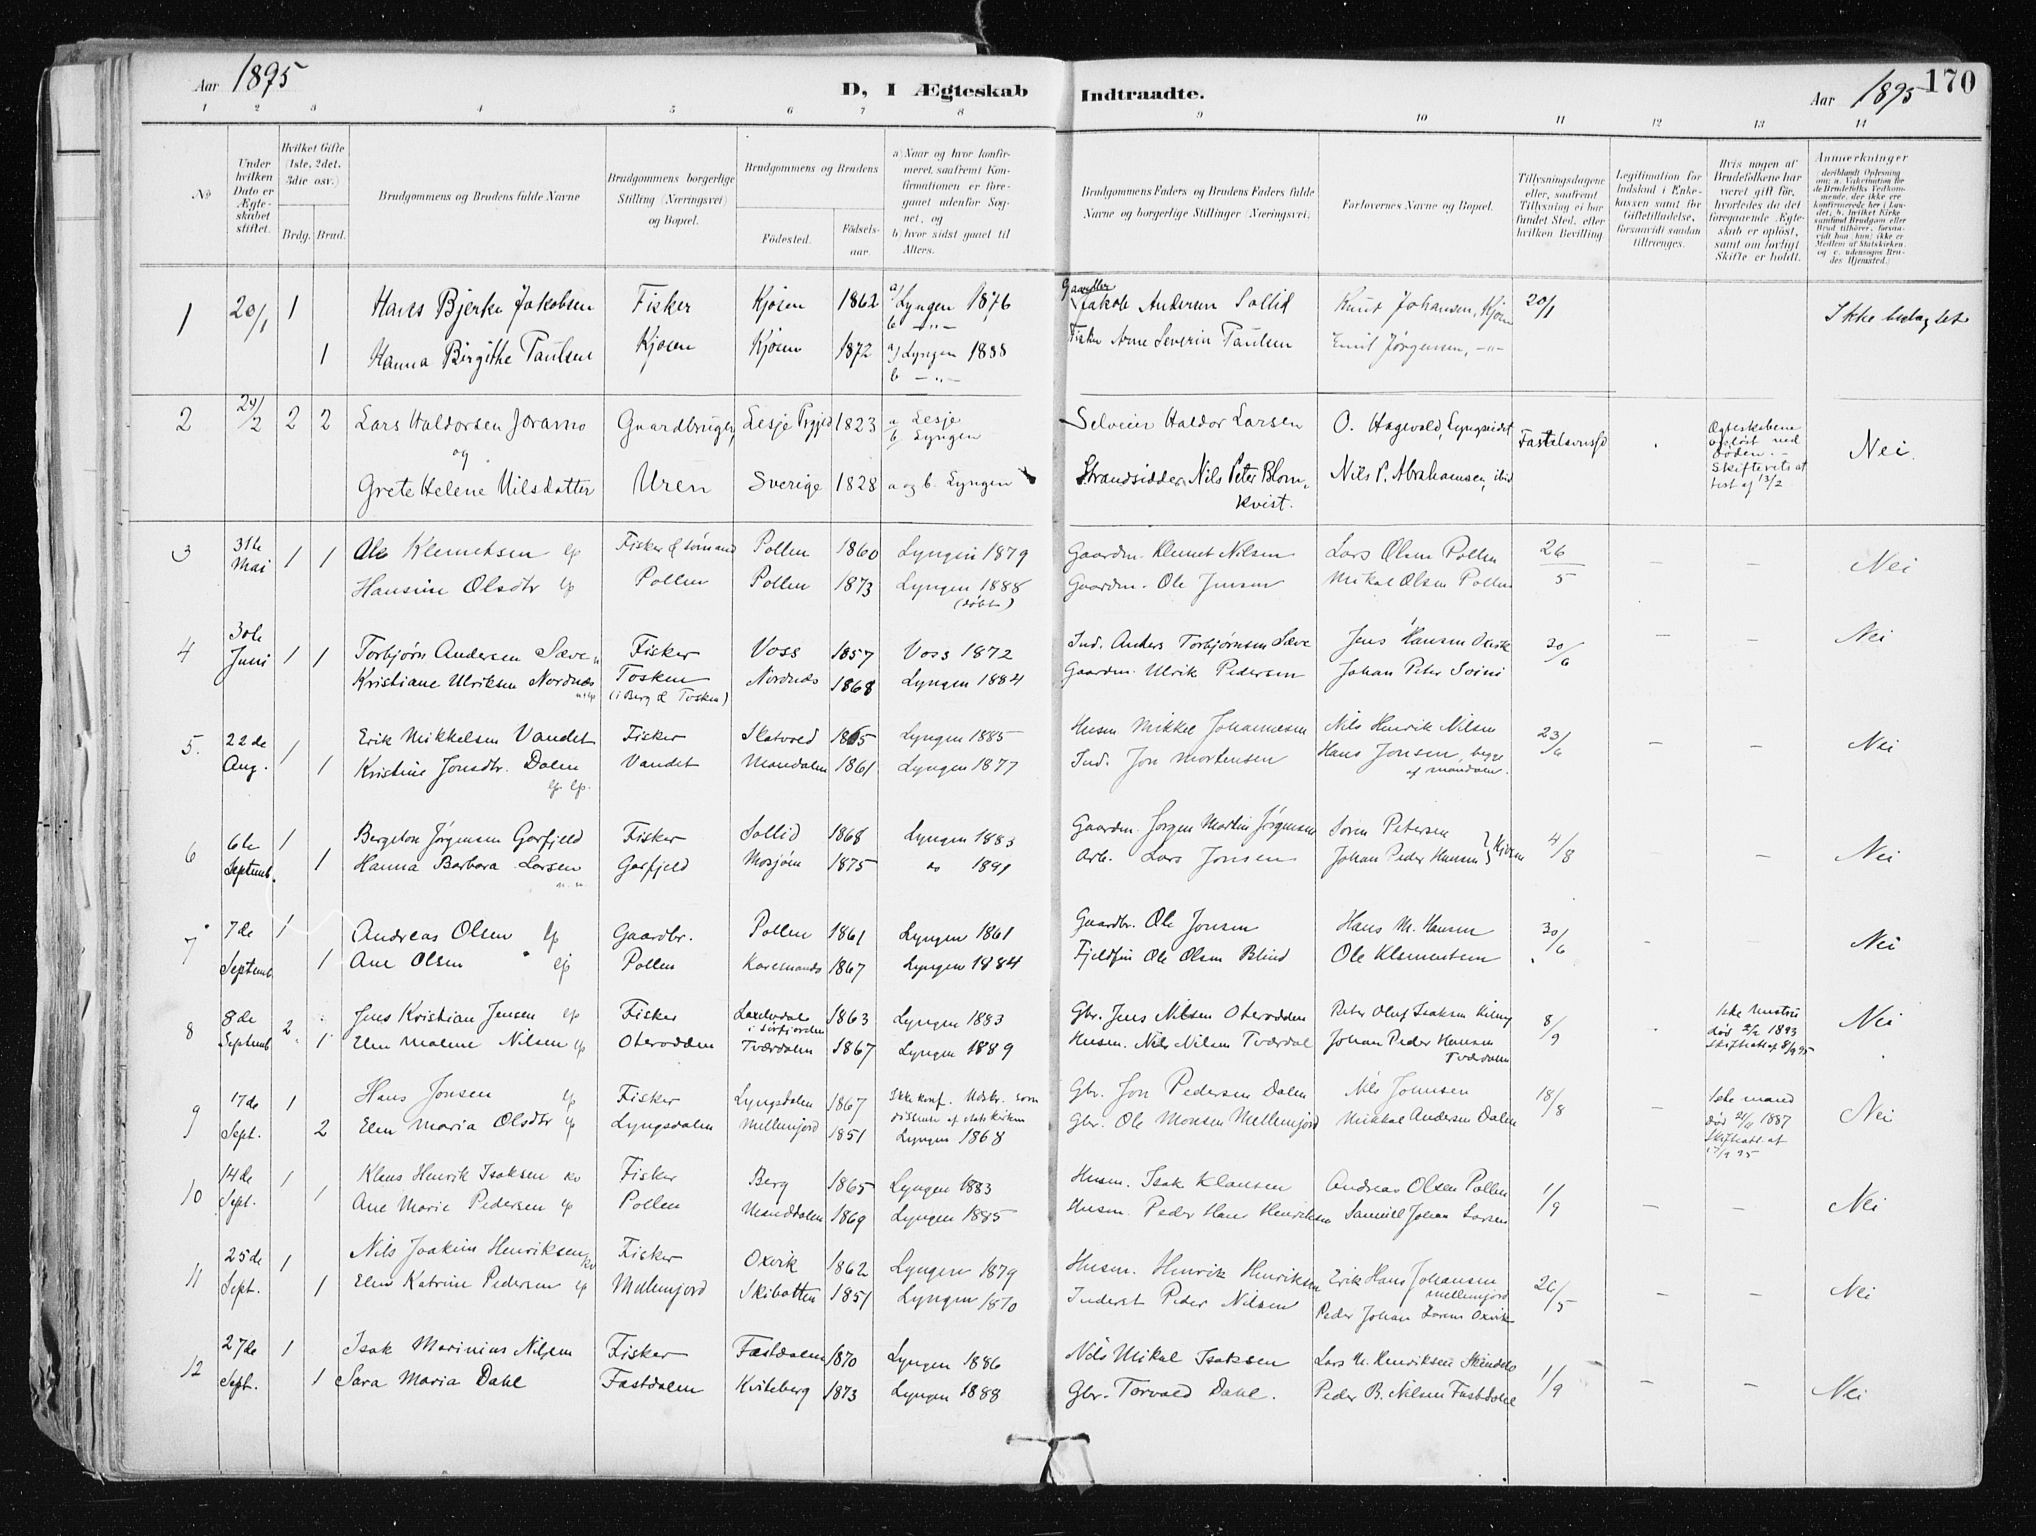 Aar 1895
D, I Ægteskab Indtraadte.
Aar 1895 170
1 2 3 4 5 6 7 8 9 10 11 12 13 14
No
Under hvilken Dato er Ægteskabet stiftet.
Hvilket Gifte (1ste, 2det, 3die osv.)
Brdg. Brud.
Brudgommens og Brudens fulde Navne
Brudgommens borgerlige Stilling (Næringsvei) og Bopæl.
Brudgommens og Brudens
Fødested.
Fødselsaar.
a) Naar og hvor konfirmeret, saafremt Konfirmationen er foregaaet udenfor Sognet, og
b) hvor sidst gaaet til Alters.
Brudgommens Faders og Brudens Faders fulde Navne og borgerlige Stillinger (Næringsvei)
Forlovernes Navne og Bopæl.
Tillysningsdagene eller, saafremt Tillysning ei har fundet Sted, efter hvilken Bevilling
Legitimation for Indskud i Enkekassen samt for Giftetilladelse, forsaavidt saadan tiltrænges.
Hvis nogen af Brudefolkene har været gift før, hvorledes da det foregaaende Ægteskab er opløst, samt om lovligt Skifte er holdt.
Anmærkninger
1 20/1 1 Hans Bjerke Jakobsen Fisker Kjosen 1862 a/ Lyngen 1876 Gaardbr Jakob Andersen Sollid Knut Johansen, Kjosen 20/1 Ikke bedagtet
b —"—
1 Hanna Birgithe Paulsen Kjosen Kjosen 1872 a/ Lyngen 1888 Fisker Arne Severin Paulsen Emil Jørgensen, —"—
b —"—
2 24/2 2 2 Lars Haldorsen Joramo Gaardbruger, Lesje Prgjeld 1823 a Lesje Selveier Haldor Larsen O. Hagevold, Lyngseidet Fastelavnssd Ægteskabene opløst ved Døden. — Skifterets attest af 13/2 Nei.
og b Lyngen
Grete Helene Nilsdatter Uren Sverige 1828 a og b. Lyngen Strandsidder Nils Peter Blomkvist. Nils P. Abrahamsen, ibid
3 31te Mai 1 1 Ole Klemetsen lp Fisker & sømand Pollen 1860 Lyngen 1879 Gaardm. Klemet Nilsen Lars Olsen Pollen 26/5 — — Nei
Hansine Olsdtr lp Pollen Pollen 1873 Lyngen 1888 (døbt) Gaardm. Ole Jensen Mikal Olsen Pollen
4 30te Juni 1 1 Torbjørn Andersen Sæve n Fisker Voss 1857 Voss 1872 Ind. Anders Torbjørnsen Sæve Jens Hansen Oxvik 20/6 — — Nei
Kristiane Ulriksen Nordnæs Tosken (i Berg & Tosken) Nordnæs 1868 Lyngen 1884 Gaardm. Ulrik Pedersen Johan Peter Soini
5. 22de Aug. 1 Erik Mikkelsen Vandet Fisker Skatvold 1865 Lyngen 1885 Husm Mikkel Johannesen Nils Henrik Nilsen 23/6 — — Nei
1 Kristine Jonsdtr. Dalen lp lp. Vandet Mandalen 1861 Lyngen 1877 Ind. Jon Mortensen Hans Jonsen, begge af Mandalen.
6 6te Septemb. 1 Bergeton Jørgensen Goafjeld Fisker Sollid 1868 Lyngen 1883 Gaardm. Jørgen Martin Jørgensen Søren Petersen 4/8 — — Nei
1 Hanna Barbara Larsen n. n. Goafjeld Mosjøen 1875 do 1891 Arb. Lars Jonsen Johan Peder Hansen } Kjosen
7 7de Septemb 1 Andreas Olsen lp Gaardbr. Pollen 1861 Lyngen 1861 Gaardbr. Ole Jonsen Hans M. Hansen 30/6 — — Nei
1 Ane Olsen lp Pollen Karesuando 1867 Lyngen 1884 Fjeldfin Ole Olsen Blind Ole Klementsen
8 8de Septemb 2 Jens Kristian Jensen lp Fisker Laxelvdal i Sørfjorden 1863 Lyngen 1883 Gbr. Jens Nilsen Oterodden Peter Oluf Isaksen 8/9 1ste hustru død 2/2 1893 Skifteatt. af 8/9 95 Nei
1 Elen Malene Nilsen lp Oterodden Tværdalen 1867 Lyngen 1889 Husm. Nils Nilsen Tværdal Johan Peder Hansen Tværdalen
9 17de Sept. 1 Hans Jonsen lp Fisker Lyngsdalen 1867 Ikke konf. Udtr. som dissenter af statskirken Gbr. Jon Pedersen Dalen Nils Johnsen 18/8 — 1ste mand død 21/6 1887 Skifteatt. af 17/9 95 Nei
2 Elen Maria Olsdtr lp Lyngsdalen Mellemjord 1851 Lyngen 1868 Gbr. Ole Monsen Mellemjord Mikkal Andersen Dalen
10 14de Sept. 1 Klaus Henrik Isaksen kv Fisker Berg 1865 Lyngen 1883 Husm. Isak Klausen Andreas Olsen Pollen 1/9 — — Nei
1 Ane Marie Pedersen lp Pollen Manddalen 1869 Lyngen 1885 Husm. Peder Hans Henriksen Samuel Johan Larsen
11 25de Sept. 1 Nils Joakim Henriksen kv Fisker Oxvik 1862 Lyngen 1879 Husm. Henrik Henriksen Erik Hans Johansen Mellemjord 26/5 — — Nei
1 Elen Katrine Pedersen lp Mellemjord Skibotten 1851 Lyngen 1870 Inderst Peder Nilsen Peder Johan Larsen Oxvik
12 27de Sept. 1 Isak Marinius Nilsen Fisker Fastdalen 1870 Lyngen 1886 Nils Mikal Isaksen Lars M. Henriksen 1/9 — — Nei
1 Sara Maria Dahl Fastdalen Kviteberg 1873 Lyngen 1888 Gbr. Torvald Dahl. Peder B. Nilsen Fastdalen